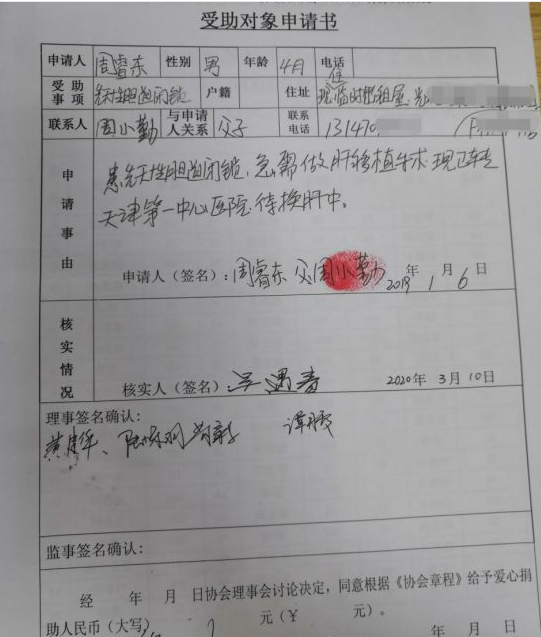 受助对象申请书
申请人 周睿东 性别 男 年龄 4月 电话
受助事项 先天性胆道闭锁 户籍 住址 现临时租屋
联系人 周小勤 与申请人关系 父子 联系电话 131470
申请事由
患先天性胆道闭锁,急需做肝移植手术.现已转
天津第一中心医院待换肝中。
申请人(签名):周睿东 父:周小勤 2019年1月6日
核实情况
核实人(签名) 2020年3月10日
理事签名确认:
黄建华、
监事签名确认:
经 年 月 日协会理事会讨论决定,同意根据《协会章程》给予爱心捐
助人民币(大写) 元(¥ 元)。
年 月 日